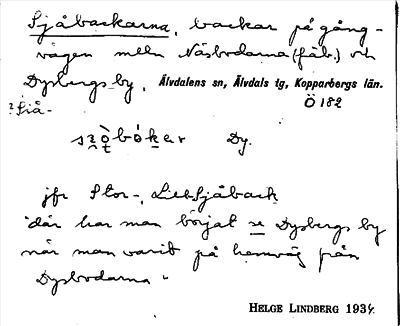 Sjåbackarna, backar på gång-
vägen mlln Näsbodarna (fäb.) och
Dysbergs by, Älvdalens sn, Älvdals tg, Kopparbergs län.
Ö 182
? Siå-
Dy.
jfr Stor-, Lill-Sjåback
"där har man börjat se Dysbergs by
när man varit på hemväg från
Dysbodarna"
HELGE LINDBERG 1934.